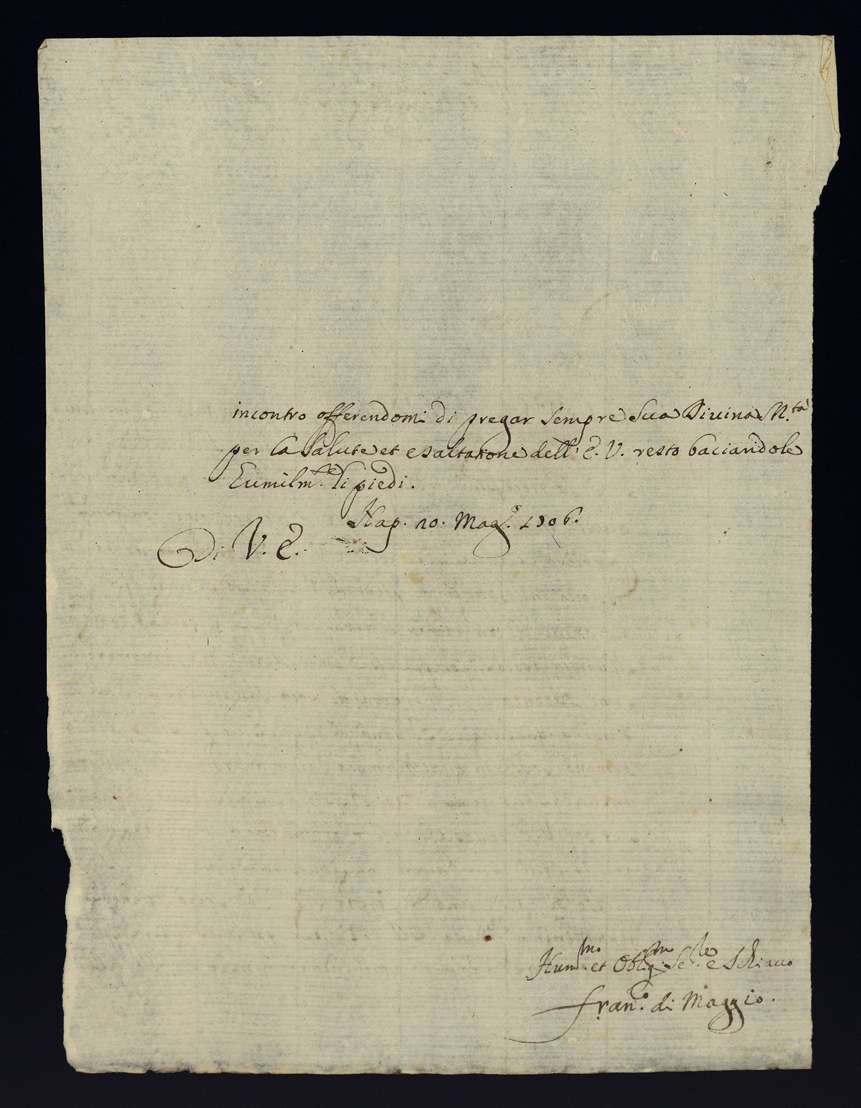 incontro offerendomi di pregar sempre Sua Diuina M.tà
per la salute et esaltatione dell' E. V. resto baciandole
Eumilm.te li piedi.
Nap. 10. Mag.o 1706.
Di V. E.
Hum.mo et Oblig.mo Se.re e Schiauo
Fran.o di Maggio.